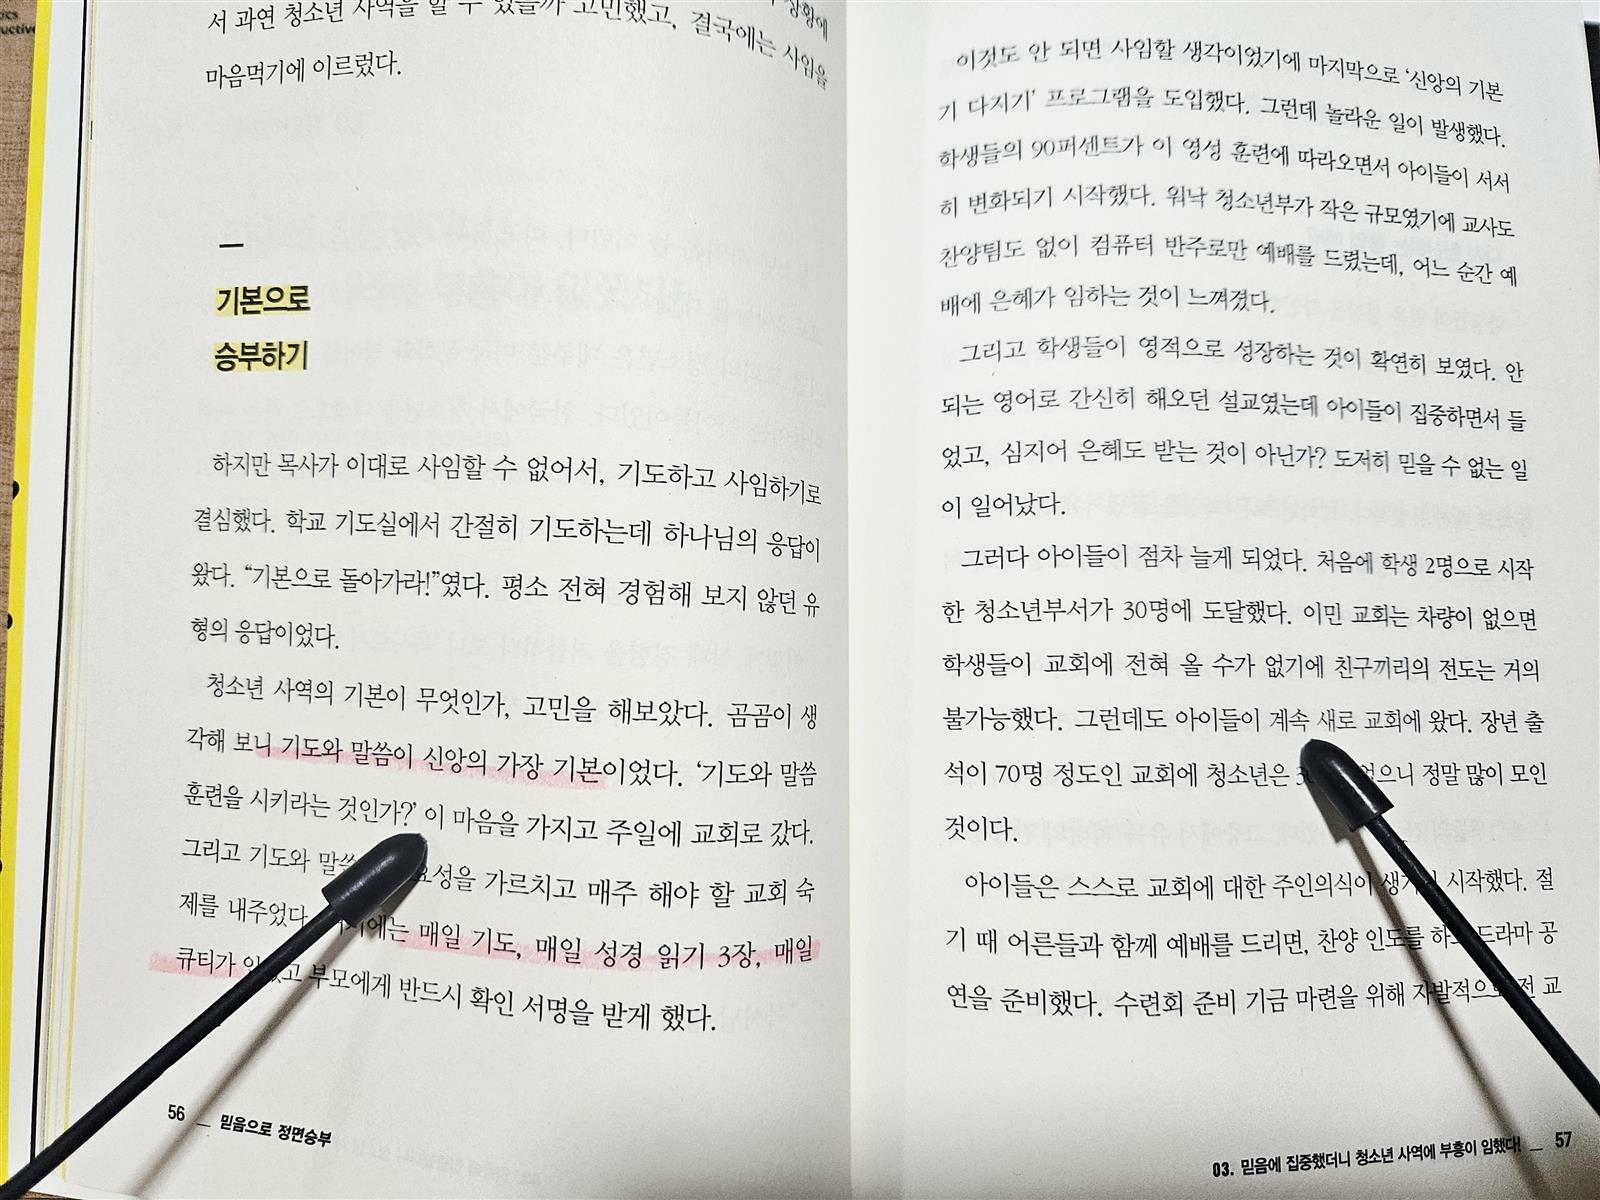 서 과연 청소년 사역을 할 수 있을까 고민했고, 결국에는 사임을
마음먹기에 이르렀다.
기본으로
승부하기
하지만 목사가 이대로 사임할 수 없어서, 기도하고 사임하기로
결심했다. 학교 기도실에서 간절히 기도하는데 하나님의 응답이
왔다. “기본으로 돌아가라!”였다. 평소 전혀 경험해 보지 않던 유
형의 응답이었다.
청소년 사역의 기본이 무엇인가, 고민을 해보았다. 곰곰이 생
각해 보니 기도와 말씀이 신앙의 가장 기본이었다. ‘기도와 말씀
훈련을 시키라는 것인가?’ 이 마음을 가지고 주일에 교회로 갔다.
그리고 기도와 가르치고 매주 해야 할 교회 숙
제를 내주었다. 매일 기도, 매일 성경 읽기 3장, 매일
큐티가 부모에게 반드시 확인 서명을 받게 했다.
56 _ 믿음으로 정면승부
이것도 안 되면 사임할 생각이었기에 마지막으로 ‘신앙의 기본
기 다지기’ 프로그램을 도입했다. 그런데 놀라운 일이 발생했다.
학생들의 90퍼센트가 이 영성 훈련에 따라오면서 아이들이 서서
히 변화되기 시작했다. 워낙 청소년부가 작은 규모였기에 교사도
찬양팀도 없이 컴퓨터 반주로만 예배를 드렸는데, 어느 순간 예
배에 은혜가 임하는 것이 느껴졌다.
그리고 학생들이 영적으로 성장하는 것이 확연히 보였다. 안
되는 영어로 간신히 해오던 설교였는데 아이들이 집중하면서 들
었고, 심지어 은혜도 받는 것이 아닌가? 도저히 믿을 수 없는 일
이 일어났다.
그러다 아이들이 점차 늘게 되었다. 처음에 학생 2명으로 시작
한 청소년부서가 30명에 도달했다. 이민 교회는 차량이 없으면
학생들이 교회에 전혀 올 수가 없기에 친구끼리의 전도는 거의
불가능했다. 그런데도 아이들이 계속 새로 교회에 왔다. 장년 출
석이 70명 정도인 교회에 청소년은 정말 많이 모인
것이다.
아이들은 스스로 교회에 대한 주인의식이 시작했다. 절
기 때 어른들과 함께 예배를 드리면, 찬양 인도를 하고 드라마 공
연을 준비했다. 수련회 준비 기금 마련을 위해 자발적으로 전 교
03. 믿음에 집중했더니 청소년 사역에 부흥이 임했다! _ 57